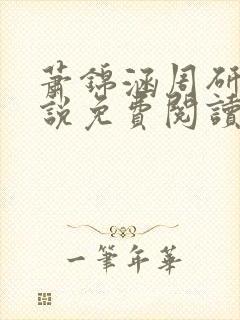 蕭錦涵周研
說免費閱讀
一筆年華